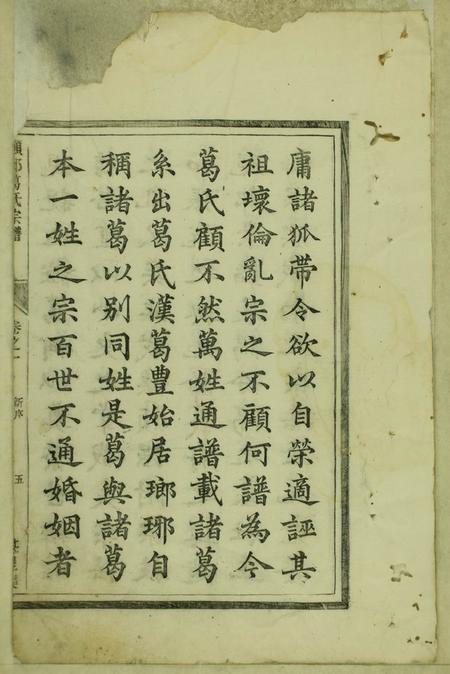 庸諸狐帶令欲以自榮適誣其
祖壞倫亂宗之不顧何譜為今
葛氏顧不然萬姓通譜載諸葛
系出葛氏漢葛豐始居瑯琊自
稱諸葛以别同姓是葛與諸葛
本一姓之宗百世不通婚姻者
葛氏宗譜
卷之一
新序
五